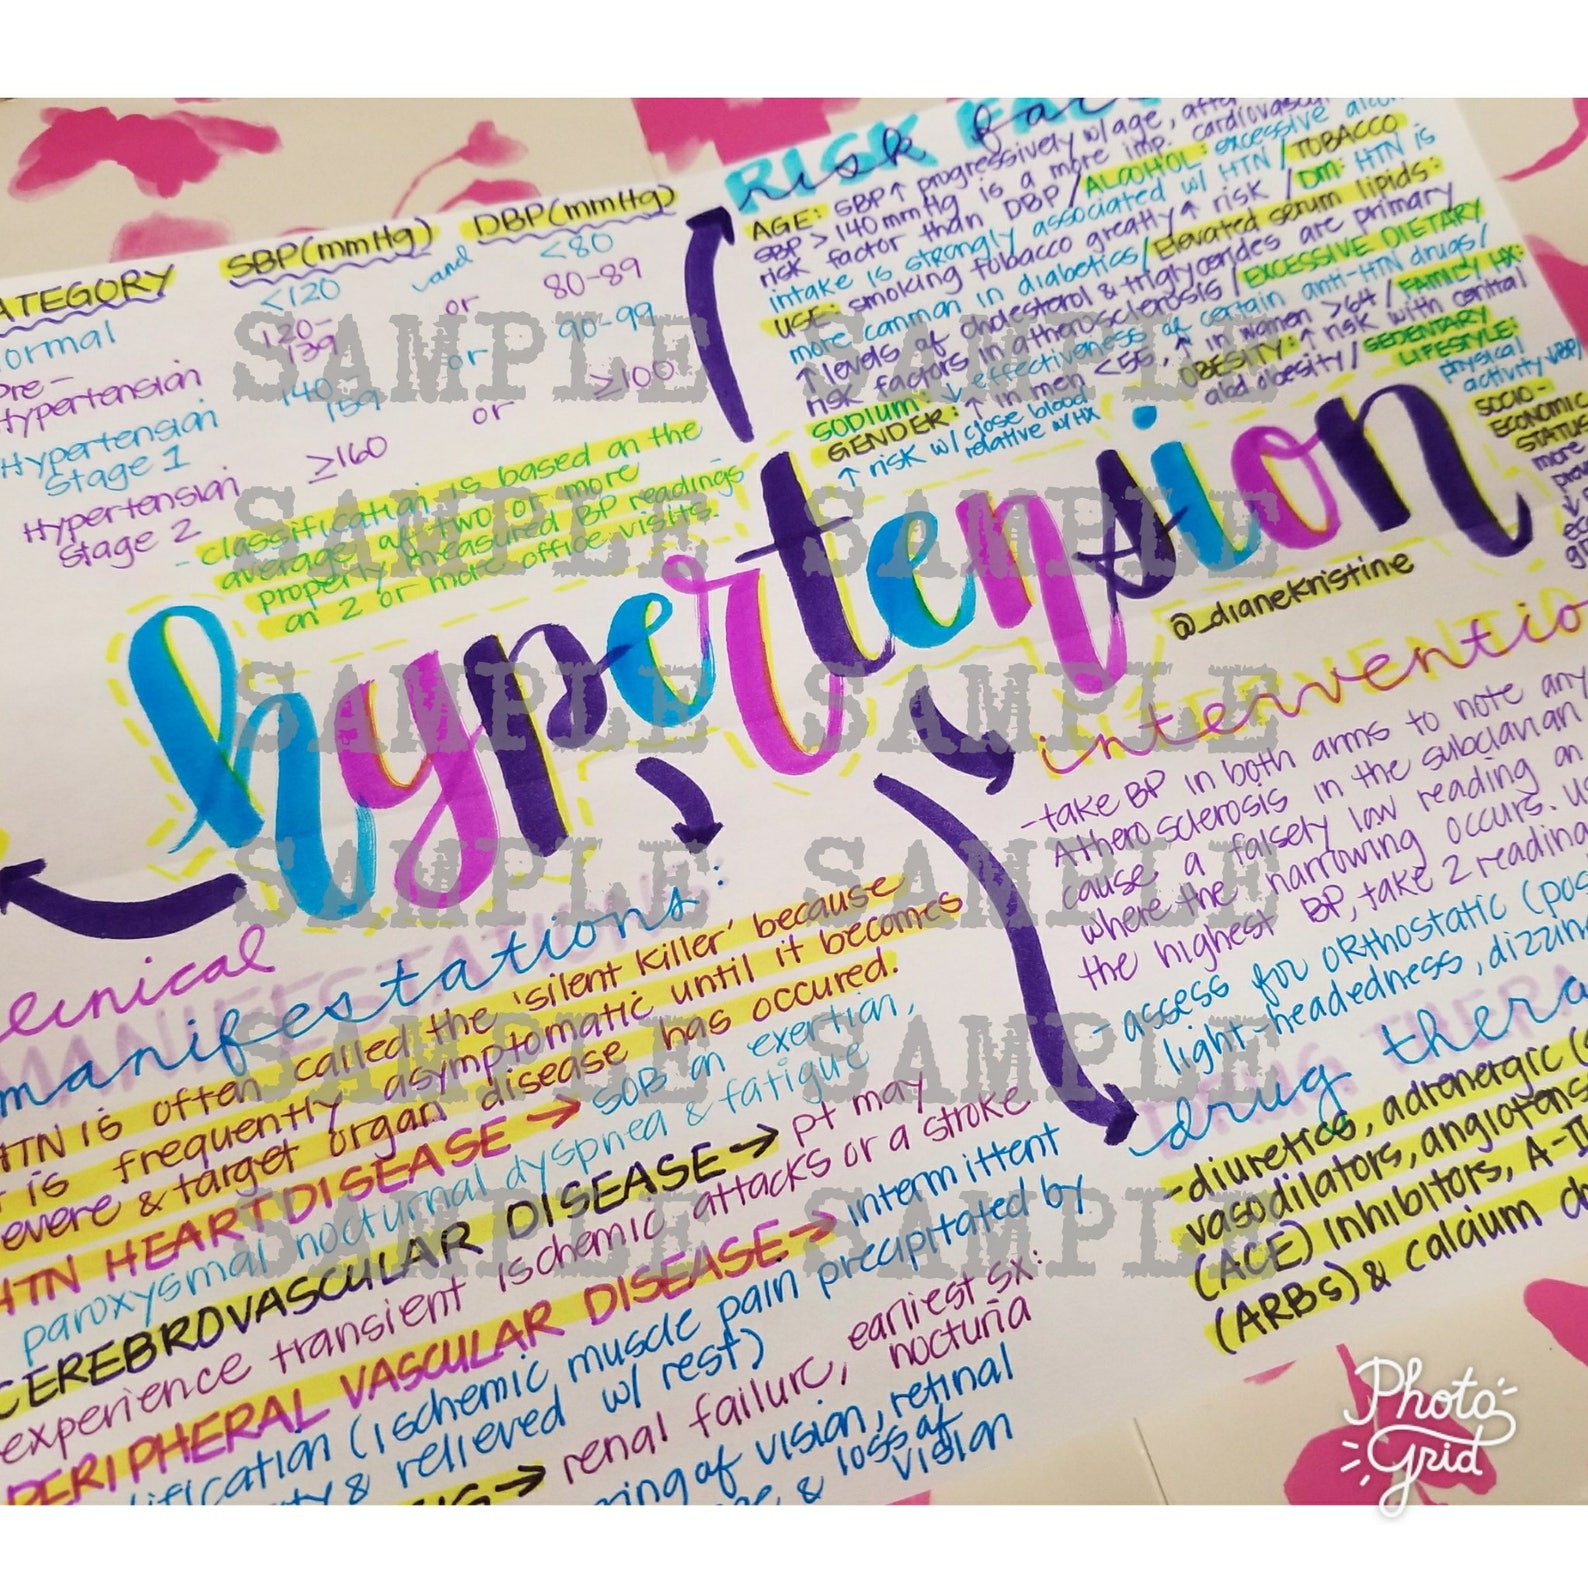 CATEGORY SBP(mmHg) DBP(mmHg)
normal <120 and <80
Pre-Hypertension 120-139 or 80-89
Hypertension Stage 1 140-159 or 90-99
Hypertension Stage 2 ≥160 or ≥100
- classification is based on the
average of two or more
properly measured BP readings
on 2 or more office visits.
RISK FAC
risk fact
AGE: SBP↑ progressively w/age, after
SBP >140mmHg is a more imp. cardiovascul
risk factor than DBP/ALCOHOL: excessive alcoh
intake is strongly associated w/ HTN/TOBACCO
USE: smoking tobacco greatly ↑ risk/DM: HTN is
more common in diabetics/Elevated serum lipids:
↑ levels of cholesterol & triglycerides are primary
risk factors in atherosclerosis/EXCESSIVE DIETARY
SODIUM: ↓ effectiveness of certain anti-HTN drugs/
GENDER: ↑ in men <55, ↑ in women >64/FAMILY HX:
↑ risk w/ close blood
relative w/HX
OBESITY: ↑ risk with central
abd obesity/SEDENTARY
LIFESTYLE:
physical
activity ↓BP/
SOCIO-
ECONOMIC
STATUS
more
↓
hypertension
@_dianekristine
interventio
-take BP in both arms to note any
Atherosclerosis in the subclavian
cause a falsely low reading on
where the narrowing occurs. U
the highest BP, take 2 reading
-assess for orthostatic (pos
light-headedness, dizzin
DRUG THERA
drug thera
-diuretics, adrenergic (
vasodilators, angiotens
(ACE) inhibitors, A-II
(ARBs) & calcium
clinical
MANIFESTATIONS
manifestations:
HTN is often called the 'silent killer' because
it is frequently asymptomatic until it becomes
severe & target organ disease has occured.
HTN HEART DISEASE → SOB on exertion,
paroxysmal nocturnal dyspnea & fatigue
CEREBROVASCULAR DISEASE → pt may
experience transient ischemic attacks or a stroke
PERIPHERAL VASCULAR DISEASE → intermittent
(ischemic muscle pain precipitated by
& relieved w/ rest)
→ renal failure, earliest sx:
nocturia
of vision, retinal
& loss of
vision
SAMPLE SAMPLE
SAMPLE SAMPLE
SAMPLE SAMPLE
SAMPLE SAMPLE
SAMPLE SAMPLE
SAMPLE SAMPLE
Photo
Grid